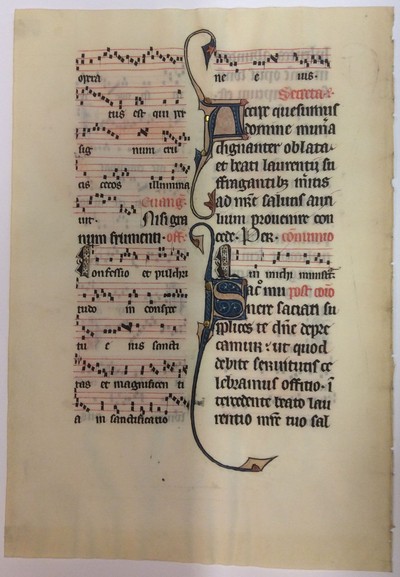 opera
tus est qui per
sig num cru
cis cecos illumina
Euang̃.
uit. Nisi gra
num frumenti. off.
Confessio et pulchri
tudo in conspe
ctu e ius sancti
tas et magnificen ti
a in sanctificatio
ne e ius.
Secreta.
Accipe quesumus
domine munera
dignanter oblata.
et beati laurentij su
ffragantibȝ meritis
ad nr̃e salutis auxi
lium prouenire con
cede. Per. cõmunio
Qui michi ministrat
Sacro mu post cõio
nere saciati su
plices te dñe depre
camur. ut quod
debite seruitutis ce
lebramus officio. ĩ
tercedente beato lau
rentio mr̃e tuo sal